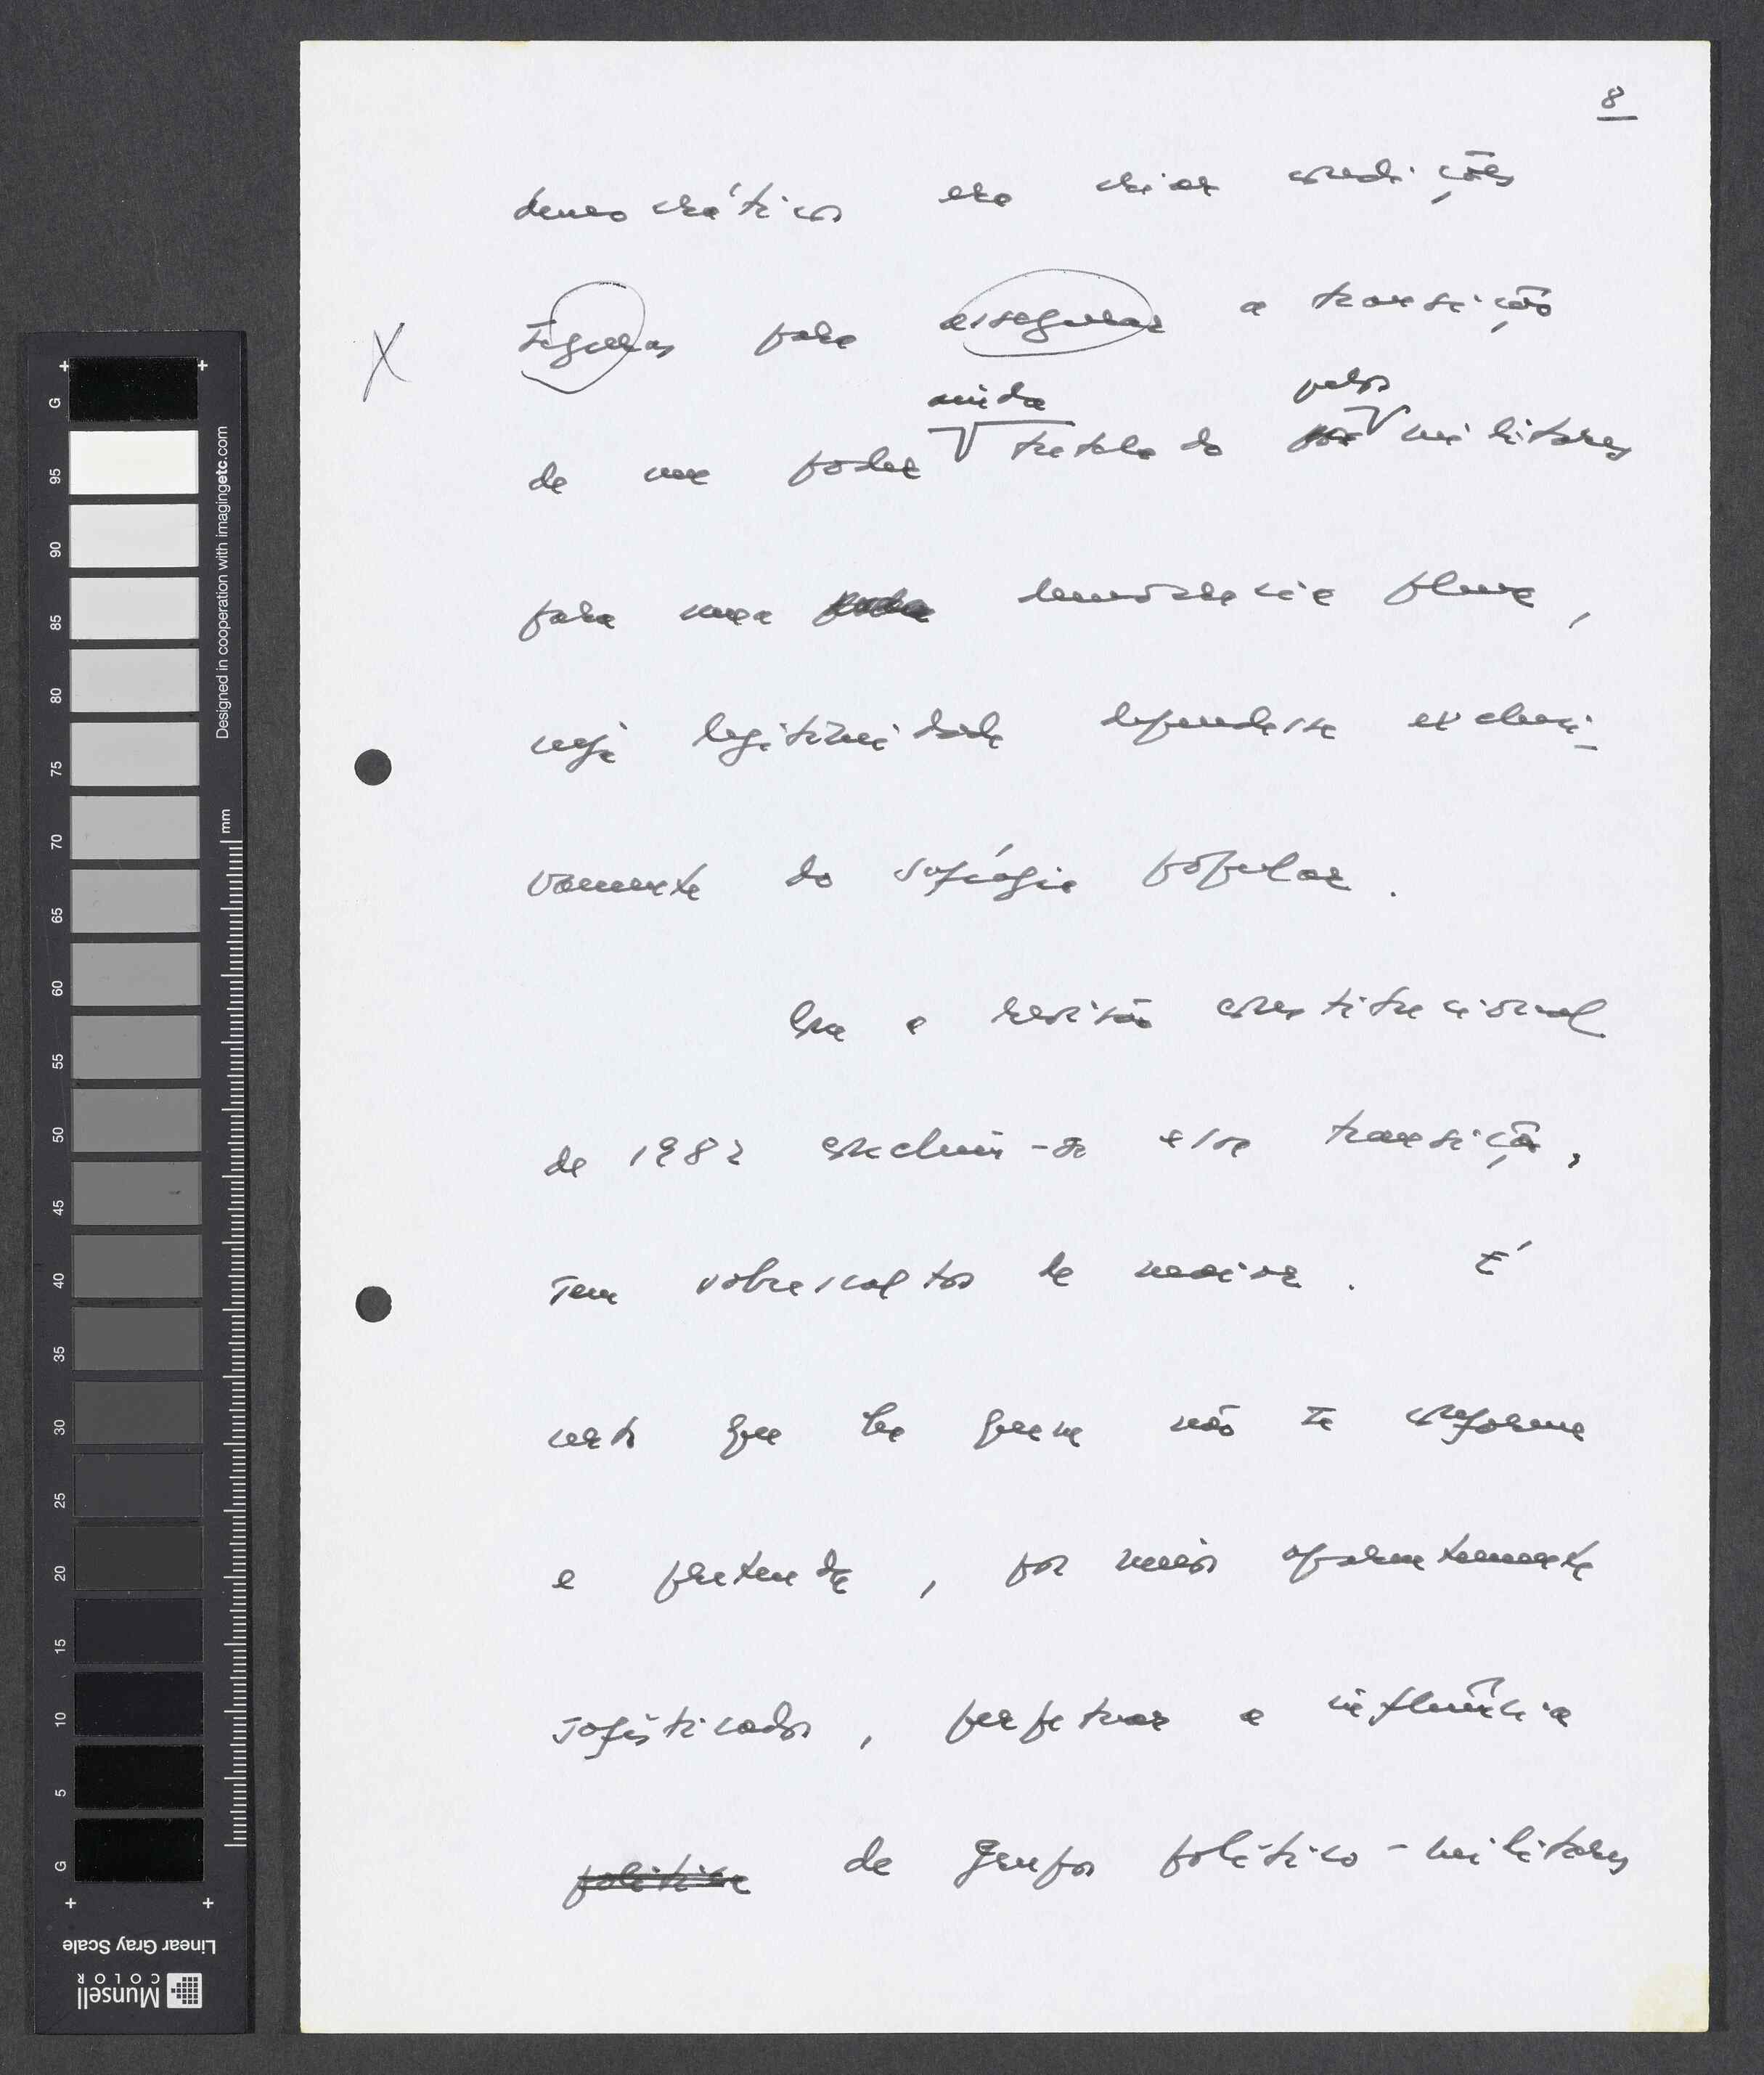 8
democráticos era criar condições
seguras para assegurar a transição
ainda pelos
de um poder tutelado por militares
para uma democracia plena,
cuja legitimidade dependesse exclusi-
vamente do sufrágio popular.
Ora a revisão constitucional
de 1982 concluiu-se essa transição,
sem sobressaltos de maior. É
certo que há quem não se conforme
e pretenda, por meios aparentemente
sofisticados, perpetuar a influência
política de grupos político-militares
G
95
90
85
80
75
70
65
60
55
50
45
40
35
30
25
20
15
10
5
G
mm
Designed in cooperation with imagingetc.com
Linear Gray Scale
Munsell
COLOR